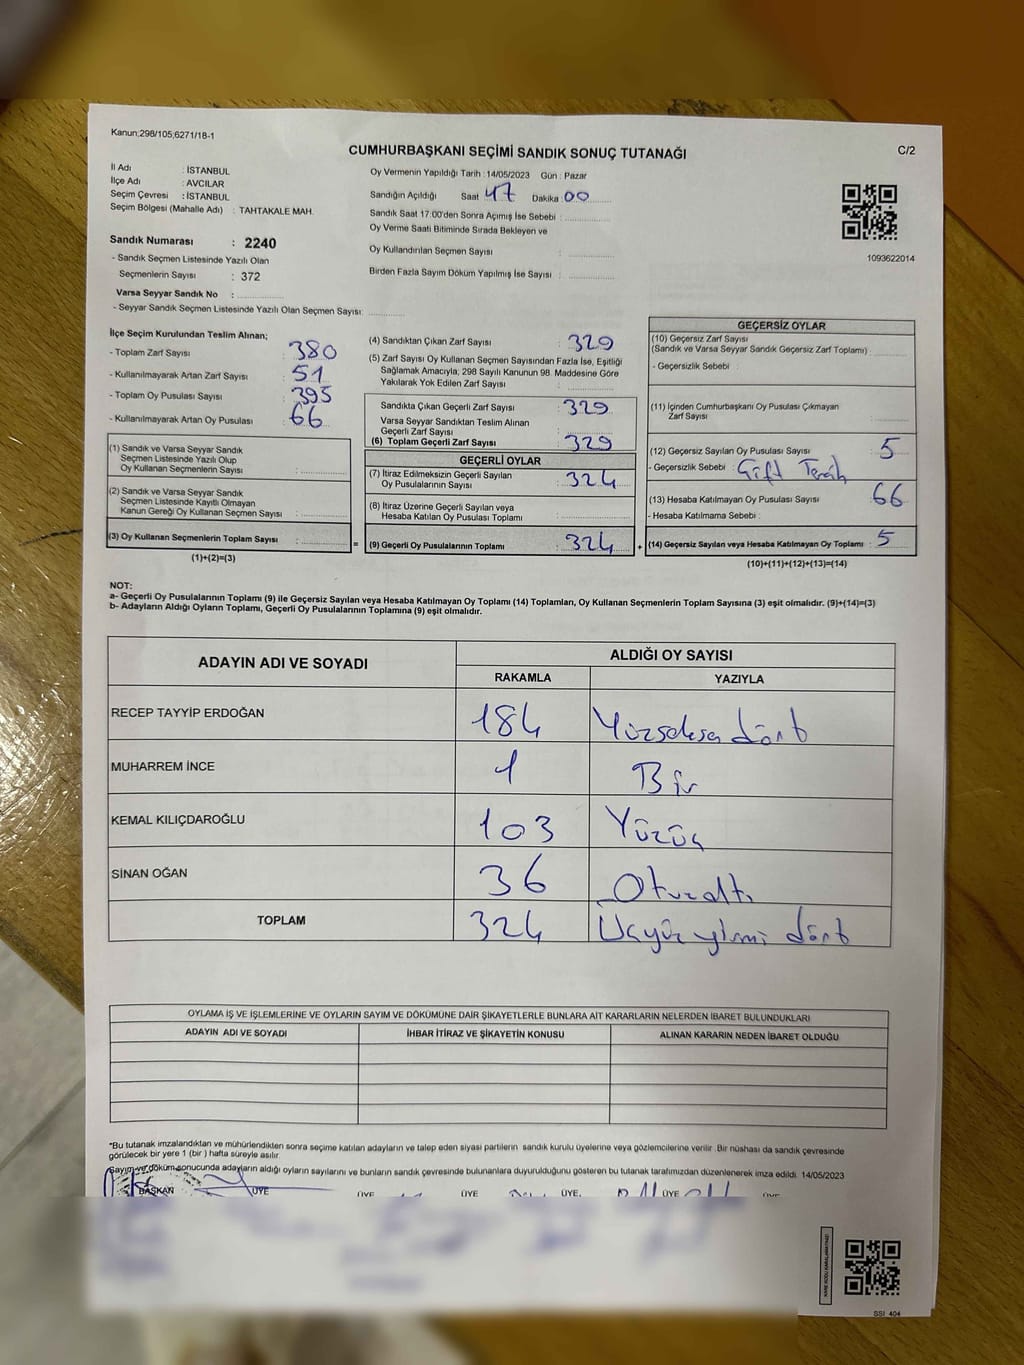 Kanun;298/105;6271/18-1
CUMHURBAŞKANI SEÇİMİ SANDIK SONUÇ TUTANAĞI
C/2
İl Adı : İSTANBUL
İlçe Adı : AVCILAR
Seçim Çevresi : İSTANBUL
Seçim Bölgesi (Mahalle Adı) : TAHTAKALE MAH.
Sandık Numarası : 2240
- Sandık Seçmen Listesinde Yazılı Olan
Seçmenlerin Sayısı : 372
Varsa Seyyar Sandık No :
- Seyyar Sandık Seçmen Listesinde Yazılı Olan Seçmen Sayısı:
Oy Vermenin Yapıldığı Tarih : 14/05/2023 Gün : Pazar
Sandığın Açıldığı Saat 17 Dakika : 00
Sandık Saat 17:00'den Sonra Açımış İse Sebebi :
Oy Verme Saati Bitiminde Sırada Bekleyen ve
Oy Kullandırılan Seçmen Sayısı :
Birden Fazla Sayım Döküm Yapılmış İse Sayısı :
1093622014
İlçe Seçim Kurulundan Teslim Alınan;
- Toplam Zarf Sayısı : 380
- Kullanılmayarak Artan Zarf Sayısı : 51
- Toplam Oy Pusulası Sayısı : 395
- Kullanılmayarak Artan Oy Pusulası : 66
(1) Sandık ve Varsa Seyyar Sandık
Seçmen Listesinde Yazılı Olup
Oy Kullanan Seçmenlerin Sayısı :
(2) Sandık ve Varsa Seyyar Sandık
Seçmen Listesinde Kayıtlı Olmayan
Kanun Gereği Oy Kullanan Seçmen Sayısı :
(3) Oy Kullanan Seçmenlerin Toplam Sayısı :
(1)+(2)=(3)
(4) Sandıktan Çıkan Zarf Sayısı : 329
(5) Zarf Sayısı Oy Kullanan Seçmen Sayısından Fazla İse, Eşitliği
Sağlamak Amacıyla; 298 Sayılı Kanunun 98. Maddesine Göre
Yakılarak Yok Edilen Zarf Sayısı :
Sandıkta Çıkan Geçerli Zarf Sayısı : 329
Varsa Seyyar Sandıktan Teslim Alınan
Geçerli Zarf Sayısı :
(6) Toplam Geçerli Zarf Sayısı : 329
GEÇERLİ OYLAR
(7) İtiraz Edilmeksizin Geçerli Sayılan
Oy Pusulalarının Sayısı : 324
(8) İtiraz Üzerine Geçerli Sayılan veya
Hesaba Katılan Oy Pusulası Toplamı :
= (9) Geçerli Oy Pusulalarının Toplamı : 324 +
GEÇERSİZ OYLAR
(10) Geçersiz Zarf Sayısı
(Sandık ve Varsa Seyyar Sandık Geçersiz Zarf Toplamı) :
- Geçersizlik Sebebi :
(11) İçinden Cumhurbaşkanı Oy Pusulası Çıkmayan
Zarf Sayısı :
(12) Geçersiz Sayılan Oy Pusulası Sayısı : 5
- Geçersizlik Sebebi : Çift Tercih
(13) Hesaba Katılmayan Oy Pusulası Sayısı : 66
- Hesaba Katılmama Sebebi :
(14) Geçersiz Sayılan veya Hesaba Katılmayan Oy Toplamı : 5
(10)+(11)+(12)+(13)=(14)
NOT:
a- Geçerli Oy Pusulalarının Toplamı (9) ile Geçersiz Sayılan veya Hesaba Katılmayan Oy Toplamı (14) Toplamları, Oy Kullanan Seçmenlerin Toplam Sayısına (3) eşit olmalıdır. (9)+(14)=(3)
b- Adayların Aldığı Oyların Toplamı, Geçerli Oy Pusulalarının Toplamına (9) eşit olmalıdır.
ADAYIN ADI VE SOYADI
ALDIĞI OY SAYISI
RAKAMLA YAZIYLA
RECEP TAYYİP ERDOĞAN 184 Yüzseksen dört
MUHARREM İNCE 1 Bir
KEMAL KILIÇDAROĞLU 103 Yüzüç
SİNAN OĞAN 36 Otuzaltı
TOPLAM 324 Üçyüz yirmi dört
OYLAMA İŞ VE İŞLEMLERİNE VE OYLARIN SAYIM VE DÖKÜMÜNE DAİR ŞİKAYETLERLE BUNLARA AİT KARARLARIN NELERDEN İBARET BULUNDUKLARI
ADAYIN ADI VE SOYADI İHBAR İTİRAZ VE ŞİKAYETİN KONUSU ALINAN KARARIN NEDEN İBARET OLDUĞU
*Bu tutanak imzalandıktan ve mühürlendikten sonra seçime katılan adayların ve talep eden siyasi partilerin sandık kurulu üyelerine veya gözlemcilerine verilir. Bir nüshası da sandık çevresinde
görülecek bir yere 1 (bir ) hafta süreyle asılır.
Sayım ve döküm sonucunda adayların aldığı oyların sayılarını ve bunların sandık çevresinde bulunanlara duyurulduğunu gösteren bu tutanak tarafımızdan düzenlenerek imza edildi. 14/05/2023
BAŞKAN ÜYE ÜYE ÜYE ÜYE, ÜYE ÜYE
SSI_404